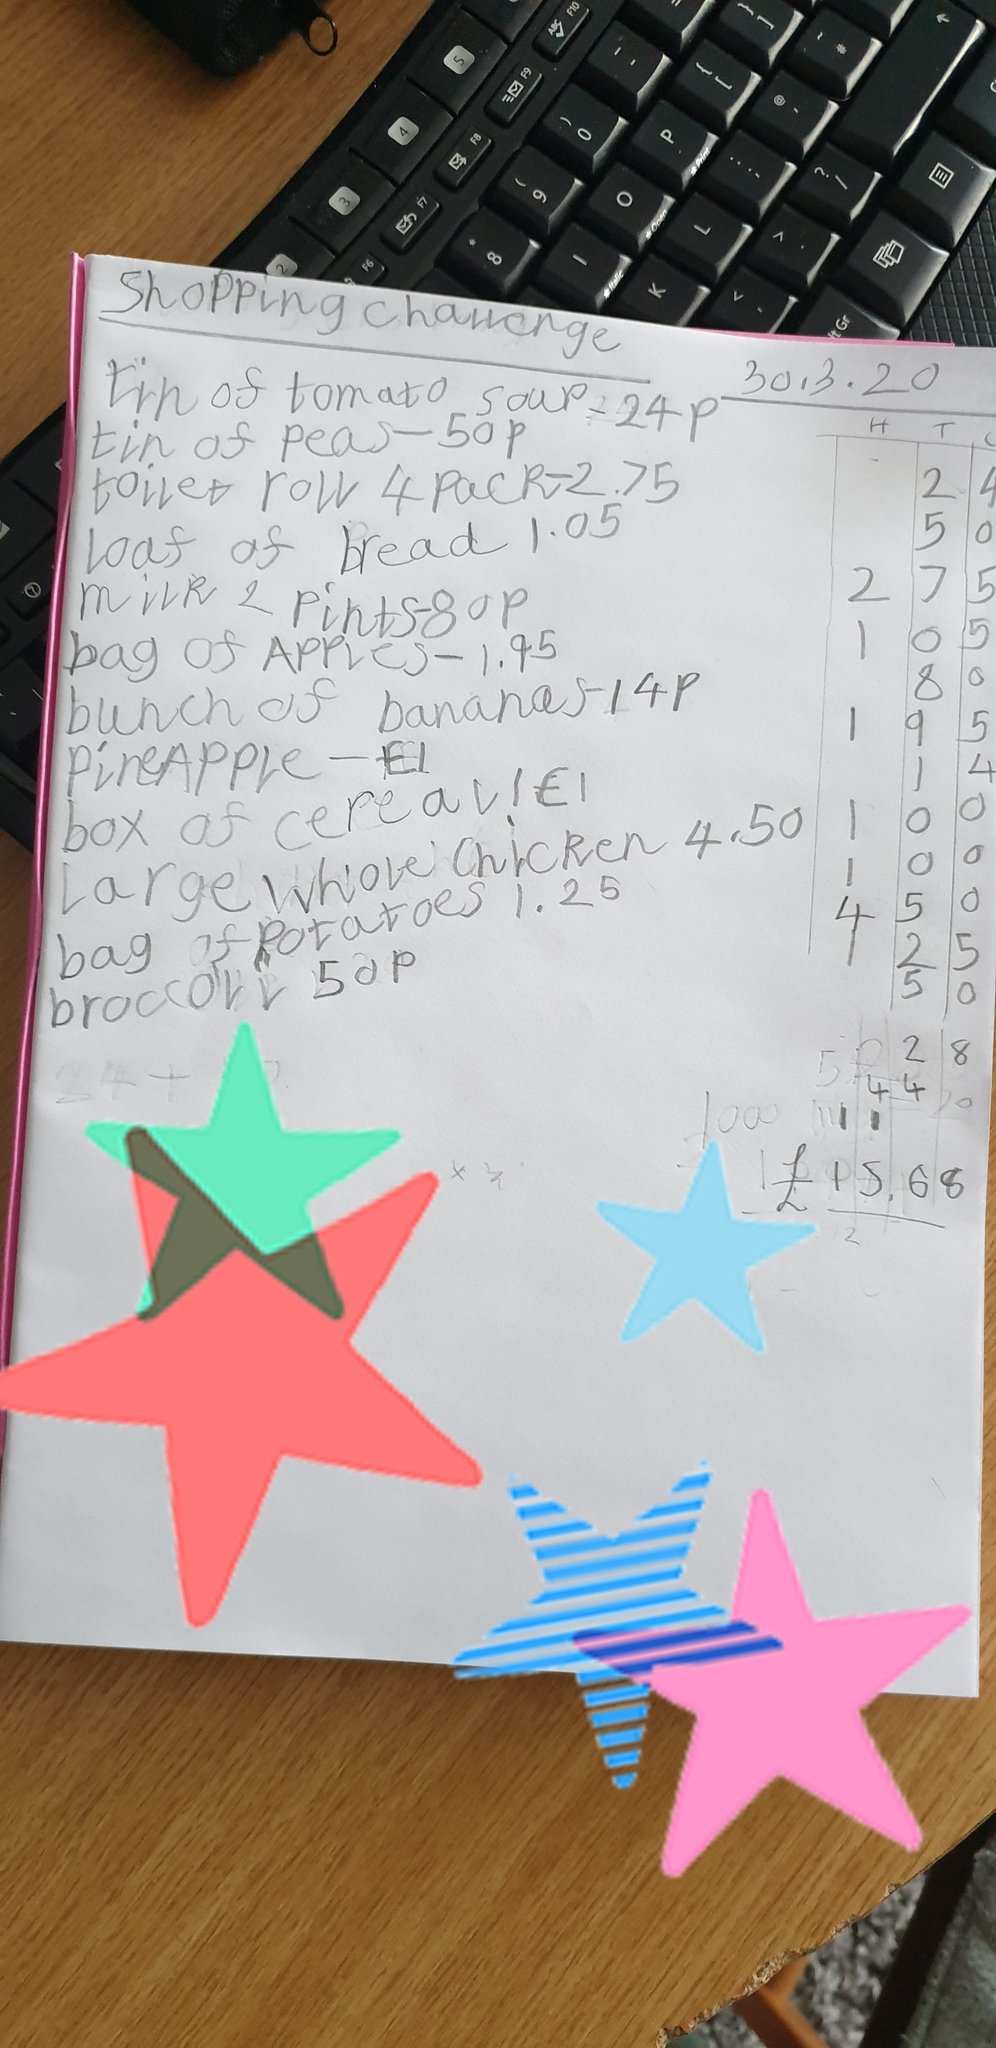 Shopping challenge
30.3.20
tin of tomato soup = 24p
tin of peas - 50p
toilet roll 4 pack - 2.75
loaf of bread 1.05
milk 2 pints - 80p
bag of Apples - 1.95
bunch of bananas - 14p
pineApple - £1
box of cereal £1
Large whole chicken 4.50
bag of potatoes 1.25
broccoli 50p
H T
2 4
5 0
2 7 5
1 0 5
8 0
1 9 5
1 4
1 0 0
1 0 0
4 5 0
1 2 5
5 0
2 8
4 4
1 1
£15.68
24 +
100
5
4
3
2
F10
F9
F8
F7
F6
ABC
* 8
( 9
) 0
- -
I
O
P
K
L
{ [
} ]
: ;
@ '
~ #
< ,
> .
? /
Italic
Open
Print
Alt Gr